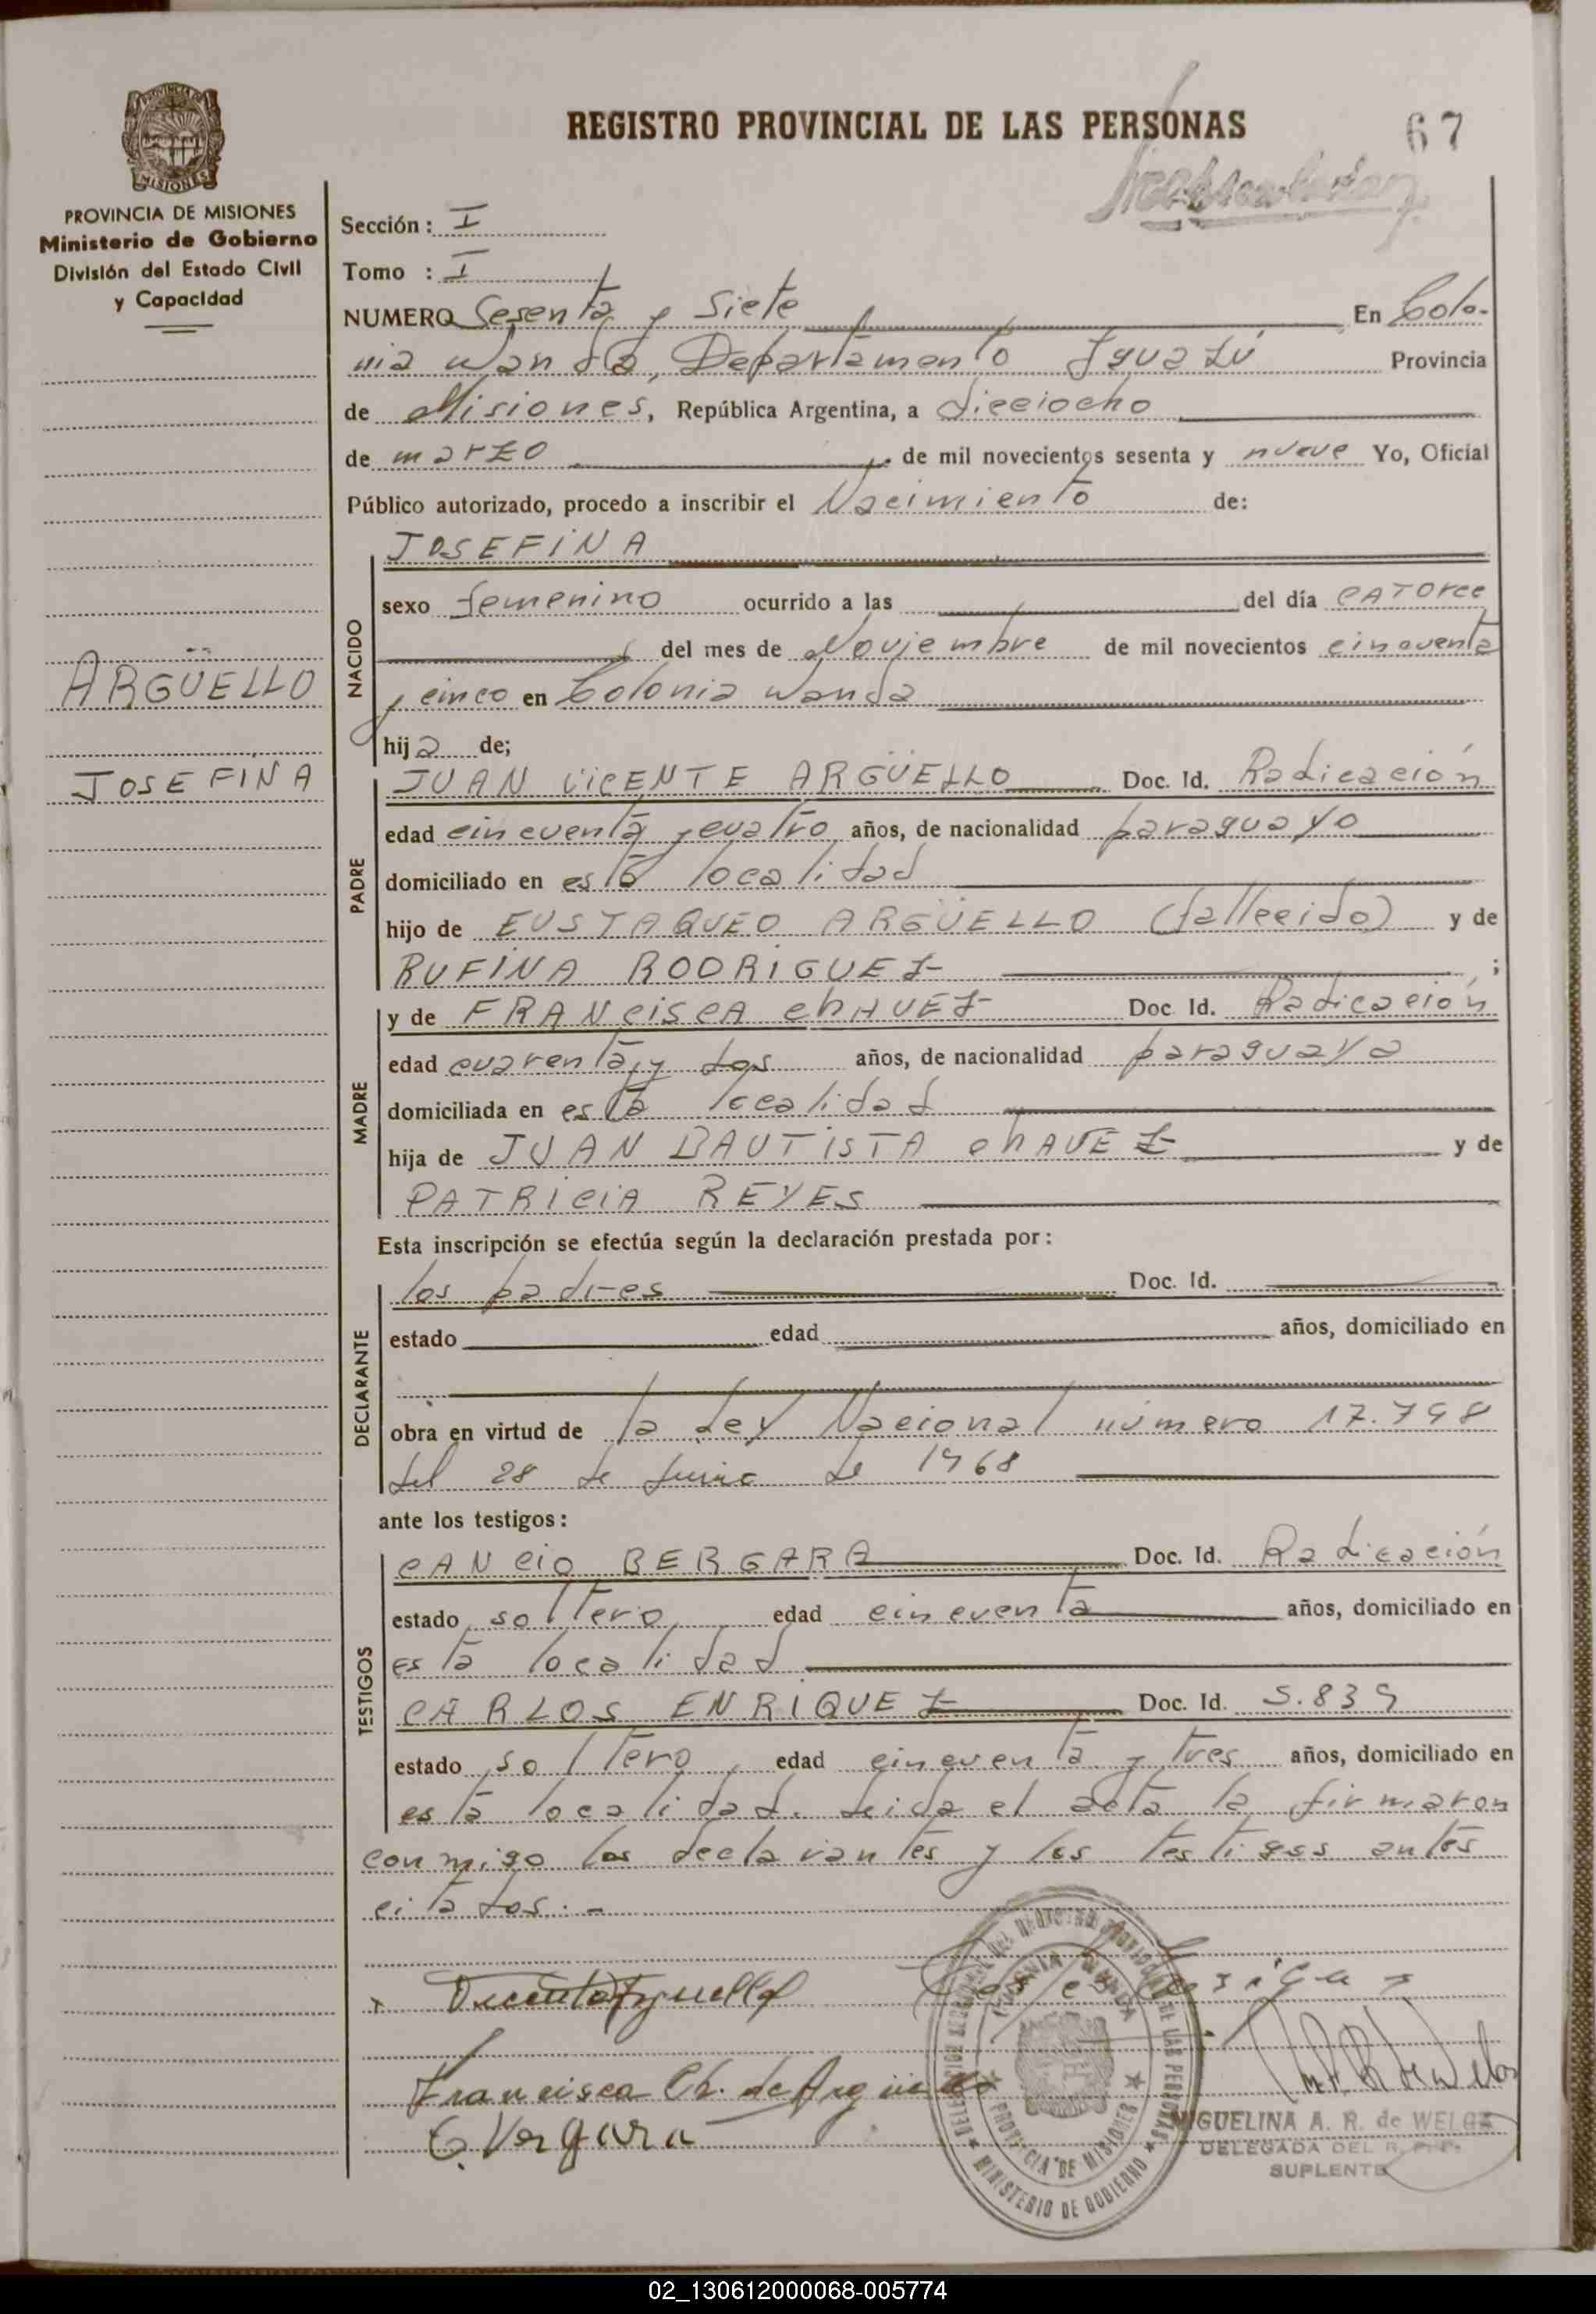 REGISTRO PROVINCIAL DE LAS PERSONAS
67
PROVINCIA DE MISIONES
Ministerio de Gobierno
División del Estado Civil
y Capacidad
Sección: I
Tomo : I
NUMERO Sesenta y Siete En Colo-
nia Wanda, Departamento Iguazú Provincia
de Misiones, República Argentina, a dieciocho
de marzo de mil novecientos sesenta y nueve Yo, Oficial
Público autorizado, procedo a inscribir el Nacimiento de:
JOSEFINA
NACIDO
sexo femenino ocurrido a las del día CATORCE
del mes de Noviembre de mil novecientos cincuenta
y cinco en Colonia Wanda
hija de;
ARGÜELLO
JOSEFINA
PADRE
JUAN VICENTE ARGÜELLO Doc. Id. Radicación
edad cincuenta y cuatro años, de nacionalidad paraguayo
domiciliado en esta localidad
hijo de EUSTAQUEO ARGÜELLO (fallecido) y de
RUFINA RODRIGUEZ ;
MADRE
y de FRANCISCA CHAVEZ Doc. Id. Radicación
edad cuarenta y dos años, de nacionalidad paraguaya
domiciliada en esta localidad
hija de JUAN BAUTISTA CHAVEZ y de
PATRICIA REYES
Esta inscripción se efectúa según la declaración prestada por:
DECLARANTE
los padres Doc. Id.
estado edad años, domiciliado en
obra en virtud de la Ley Nacional número 17.798
del 28 de Junio de 1968
ante los testigos:
TESTIGOS
CANCIO BERGARA Doc. Id. Radicación
estado soltero edad cincuenta años, domiciliado en
esta localidad
CARLOS ENRIQUEZ Doc. Id. 5.839
estado soltero, edad cincuenta y tres años, domiciliado en
esta localidad. Leida el acta la firmaron
conmigo los declarantes y los testigos antes
citados.-
x Vicente Arguello
Francisca Ch. de Arguello
C. Vergara
COLONIA WANDA
PROVINCIA DE MISIONES
MINISTERIO DE GOBIERNO
MIGUELINA A. R. de WELAZ
DELEGADA DEL R. P. P.
SUPLENTE
02_130612000068-005774